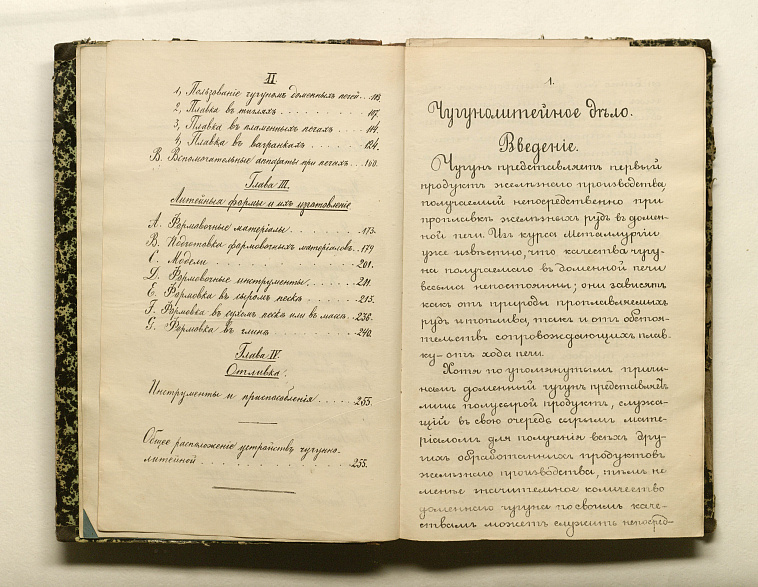 II
1, Пользованіе чугуномъ доменныхъ печей . . 103.
2, Плавка въ тигляхъ . . . . . . . 107.
3, Плавка въ пламенныхъ печахъ . . . 114.
4, Плавка въ вагранкахъ . . . . . 124.
В. Вспомогательные аппараты при печахъ . . 160.
Глава III.
Литейныя формы и ихъ изготовленіе
А. Формовочные матеріалы . . . . . . 173.
В. Подготовка формовочныхъ матеріаловъ . . 179
С. Модели . . . . . . . . . . 201.
D. Формовочные инструменты . . . . . 211.
Е. Формовка въ сыромъ пескѣ . . . . . 215.
F. Формовка въ сухомъ пескѣ или въ массѣ . . 236.
G. Формовка въ глинѣ . . . . . . . 240.
Глава IV
Отливка.
Инструменты и приспособленія . . . . 253.
Общее расположеніе устройствъ чугунно-
литейной . . . . . . . . . . 255.
1.
Чугунолитейное дѣло.
Введеніе.
Чугунъ представляетъ первый
продуктъ желѣзнаго производства,
получаемый непосредственно при
проплавкѣ желѣзныхъ рудъ въ домен-
ной печи. Изъ курса Металлургіи
уже извѣстно, что качества чугу-
на получаемаго въ доменной печи
весьма непостоянны; они зависятъ
какъ отъ природы проплавляемыхъ
рудъ и топлива, такъ и отъ обстоя-
тельствъ сопровождающихъ плав-
ку - отъ хода печи.
Хотя по упомянутымъ причи-
намъ доменный чугунъ представляетъ
лишь полусырой продуктъ, служа-
щій въ свою очередь сырымъ мате-
ріаломъ для полученія всѣхъ дру-
гихъ обработанныхъ продуктовъ
желѣзнаго производства, тѣмъ не
менѣе значительное количество
доменнаго чугуна по своимъ каче-
ствамъ можетъ служить непосред-